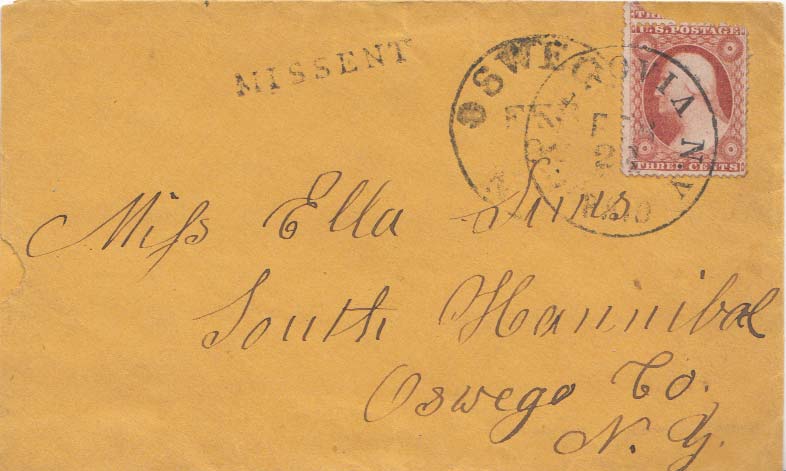 MISSENT
OSWEGO
U.S. POSTAGE
THREE CENTS
Miss Ella Sims
South Hannibal
Oswego Co.
N. Y.